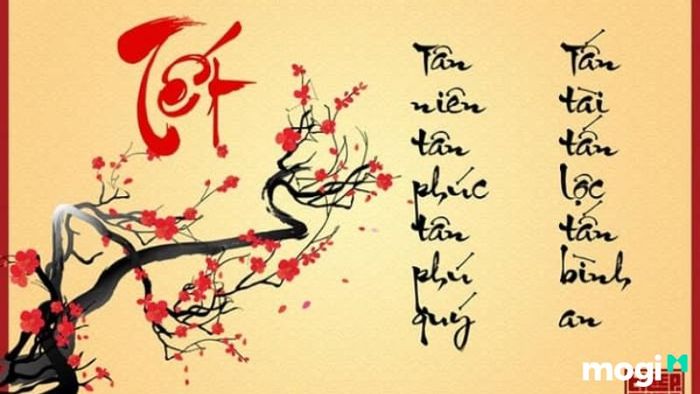 Tết
Tân
niên
tân
phúc
tân
phú
quý
Tấn
tài
tấn
lộc
tấn
bình
an
mogi